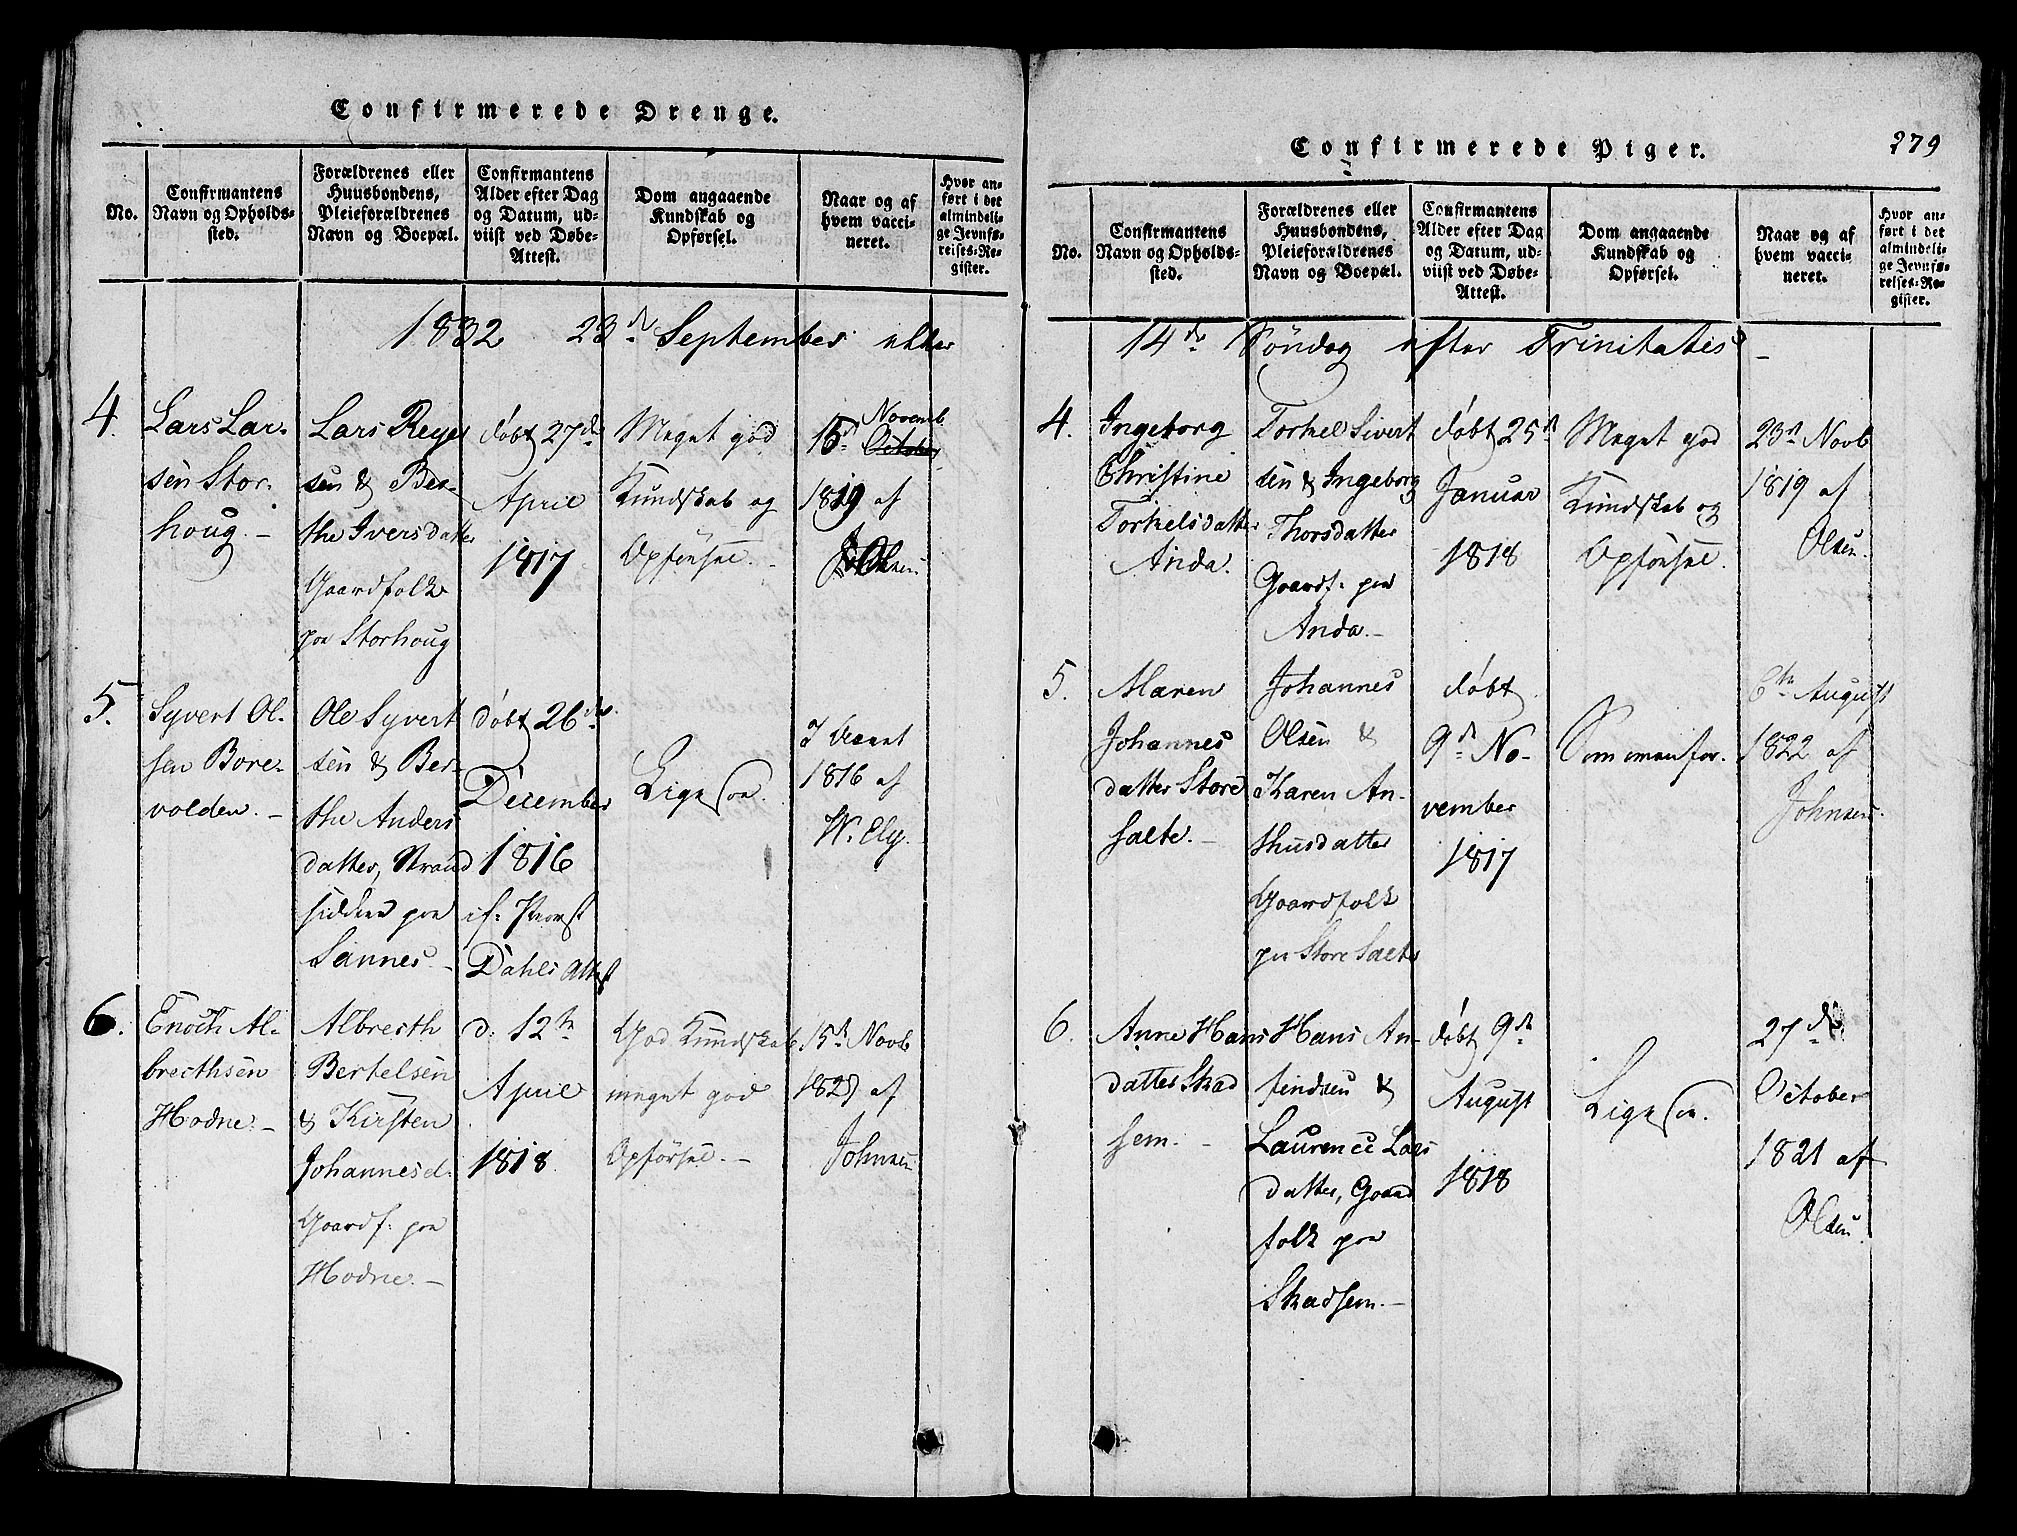 Confirmerede Drenge.
No.
Confirmantens
Navn og Opholds-
sted.
Forældrenes eller
Huusbondens,
Pleieforældrenes
Navn og Boepæl.
Confirmantens
Alder efter Dag
og Datum, ud-
viist ved Døbe-
Attest.
Dom angaaende
Kundskab og
Opførsel.
Naar og af
hvem vacci-
neret.
Hvor an-
ført i det
almindeli-
ge Jevnfø-
relses-Re-
gister.
1832 23d September eller
4.
Lars Lar-
sen Stor-
houg. -
Lars Reyer
sen & Ber-
the Iversdatter
Gaardfolk
paa Storhoug
døbt 27de
April
1817
Meget god
Kundskab og
Opførsel. -
Novemb
15d October
1819 af
Olsen.
5.
Syvert Ol-
sen Bore-
volden. -
Ole Syvert
sen & Ber-
the Anders
datter, Strand
sidder paa
Sannes. -
døbt 26de
December
1816
if: Provst
Dahls Attest
Ligesaa.
1816 af
W. Ely.
6.
Enoch Al-
brecthsen
Hodne. -
Albrecth
Bertelsen
& Kirsten
Johannesd.
Gaardf. paa
Hodne. -
d: 12te
April
1818
God Kundskab
meget god
Opførsel. -
15d Novb
1827 af
Johnsen
Confirmerede Piger.
279
No.
Confirmantens
Navn og Opholds-
sted.
Forældrenes eller
Huusbondens,
Pleieforældrenes
Navn og Boepæl.
Confirmantens
Alder efter Dag
og Datum, ud-
viist ved Døbe-
Attest.
Dom angaaende
Kundskab og
Opførsel.
Naar og af
hvem vacci-
neret.
Hvor an-
ført i det
almindeli-
ge Jevnfø-
relses-Re-
gister.
14de Søndag efter Trinitatis -
4.
Ingeborg
Christine
Torkelsdatter
Anda.
Torkel Sivert
sen & Ingeborg
Thorsdatter
Gaardf. paa
Anda. -
døbt 25d
Januar
1818
Meget god
Kundskab og
Opførsel.
23d Novb
1819 af
Olsen.
5.
Maren
Johannes
datter Store
Salte. -
Johannes
Olsen &
Karen An-
thusdatter
Gaardfolk
paa Store Salte
døbt
9d No-
vember
1817
Som ovenfor.
6te August
1822 af
Johnsen.
6.
Anne Hans
datter Skad
sem. -
Hans An-
findsen &
Laurence Lars
datter, Gaard
folk paa
Skadsem. -
døbt 9d
August
1818
Ligesaa.
27de
October
1821 af
Olsen.